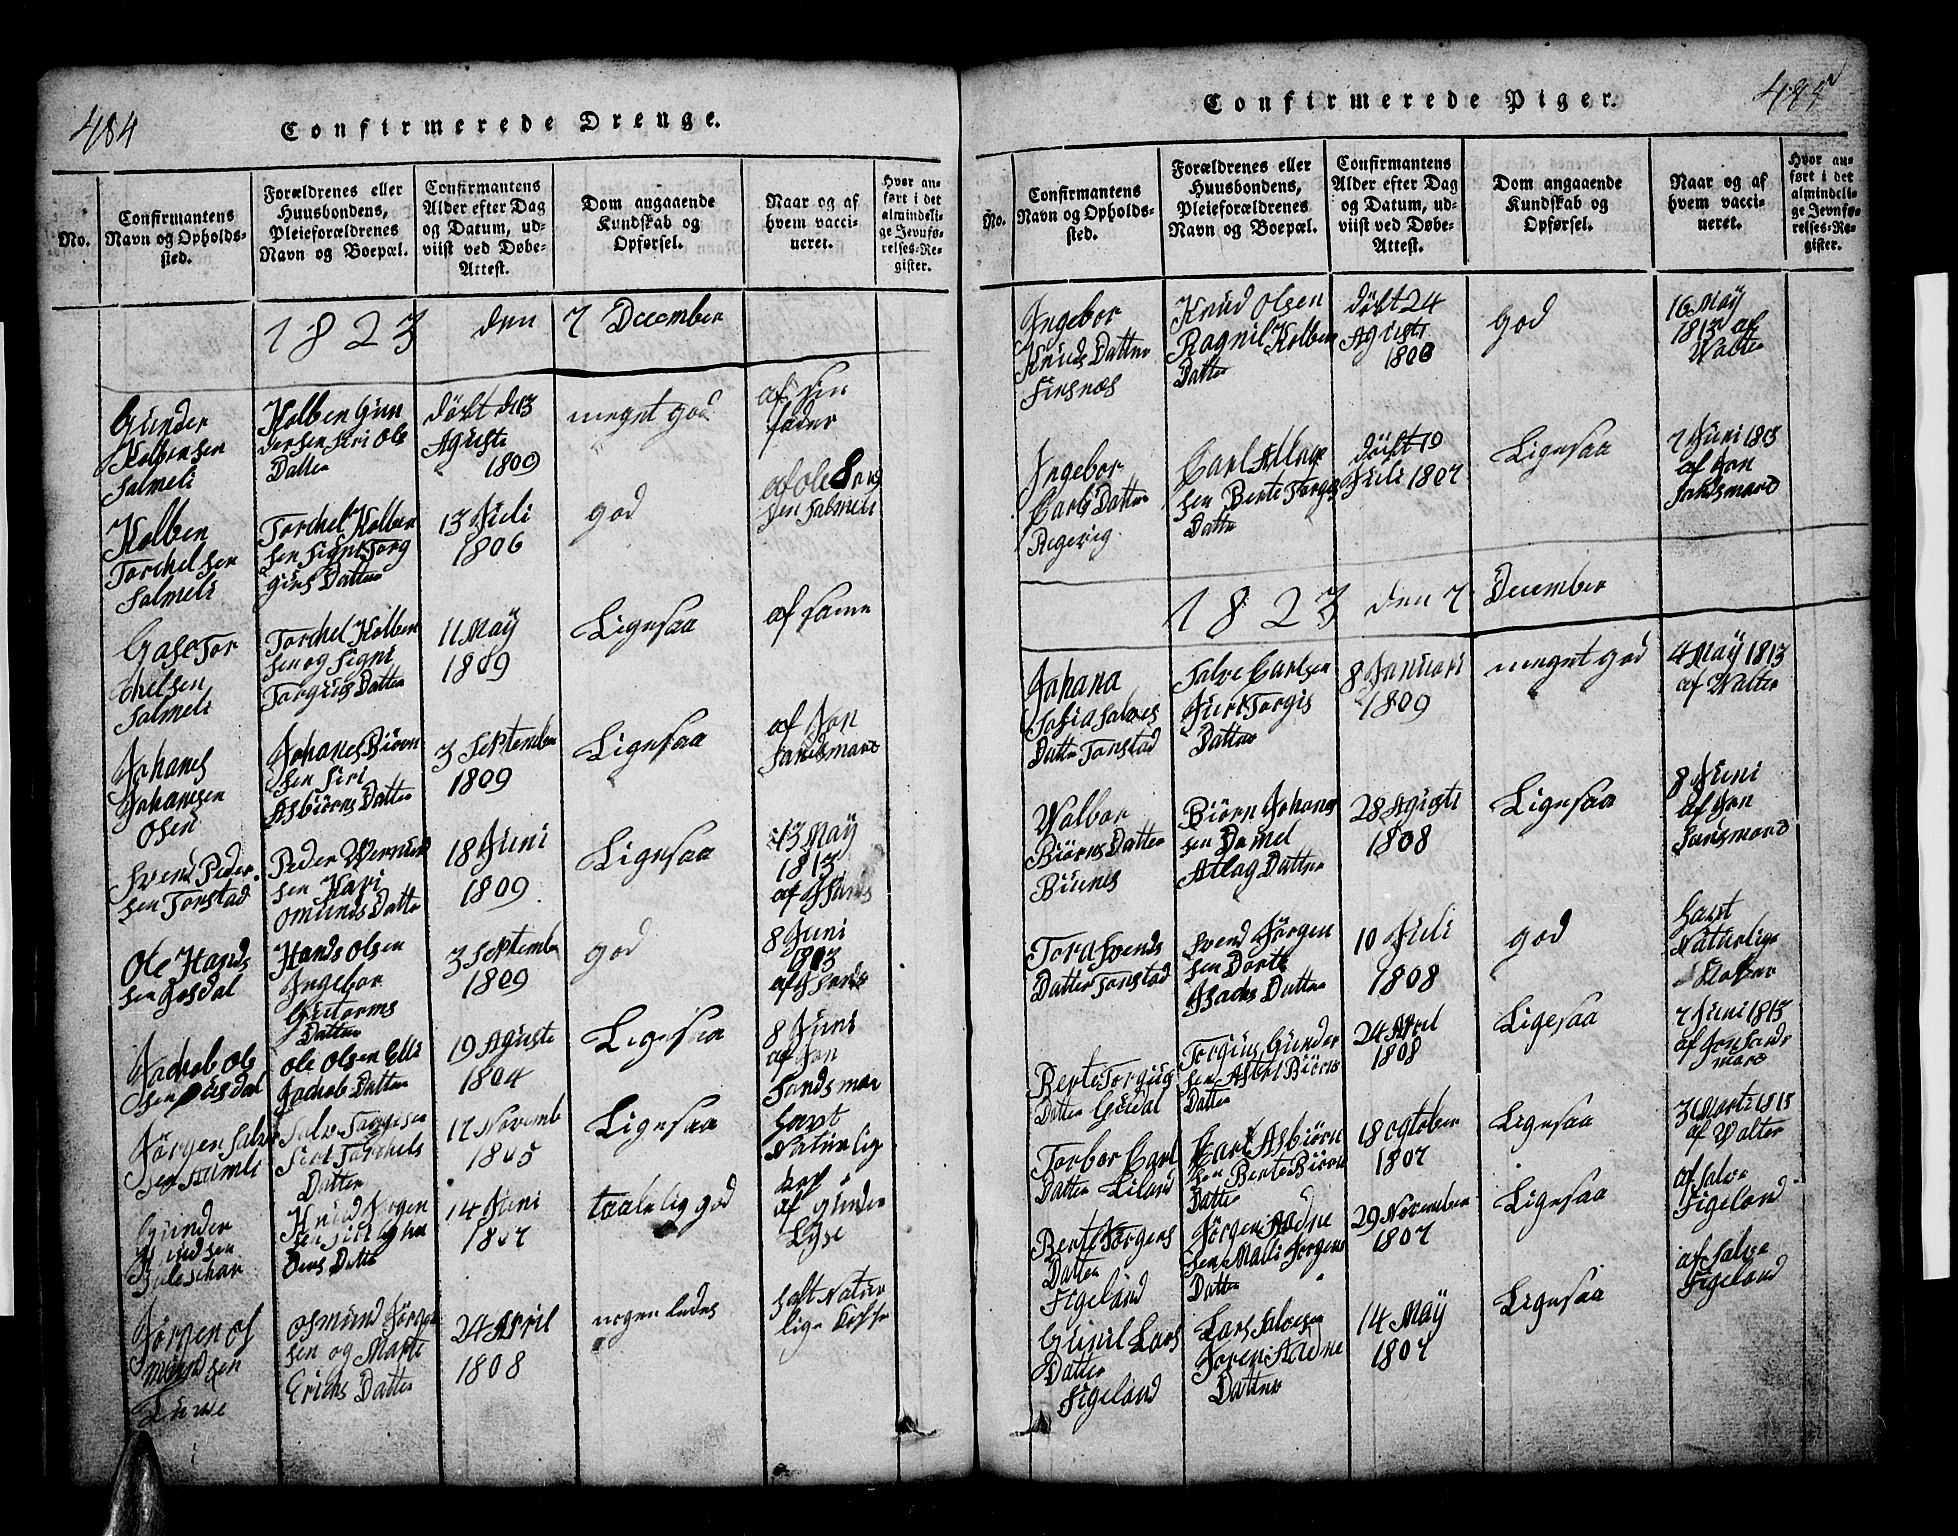 484
Confirmerede Drenge.
No.
Confirmantens
Navn og Opholds-
sted.
Forældrenes eller
Huusbondens,
Pleieforældrenes
Navn og Boepæl.
Confirmantens
Alder efter Dag
og Datum, ud-
viist ved Døbe-
Attest.
Dom angaaende
Kundskab og
Opførsel.
Naar og af
hvem vacci-
neret.
Hvor an-
ført i det
almindeli-
ge Jevnfø-
relses-Re-
gister.
1823 den 7 December
Gunder
Kolbensen
Salmeli
Kolben Gun
dersen Siri Ole
Datter
døbt d 13
Aguste
1809
meget god
af sin
fader
Kolben
Torchelsen
Salmeli
Torchel Kolben
sen Signi Torg
gius Datter
13 Juli
1806
god
af ole
sen Salmeli
Gase Tor
chelsen
Salmeli
Torchel Kolben
sen og Signi
Torgius Datter
11 May
1809
Ligesaa
af same
Johanes
Johanesen
Osen
Johanes Biørn
sen Siri
Asbiørns Datter
3 September
1809
Ligesaa
af Jon
Sandsmard
Svend Peder
sen Tonstad
Peder
sen Kari
Omunds Datter
18 Juni
1809
Ligesaa
13 May
1813
af J Sands
Ole Hands
sen Josdal
Hands Olsen
Ingebor
Gutorms
Datter
3 September
1809
god
8 Juni
1813
af J Sands
Jachob Ol
sen
Ole Olsen Elli
Jachob Datter
19 Aguste
1804
Ligesaa
8 Juni
af Jon
Sandsmar
Jørgen Salve
sen
Salve Torgiesen
Siri Torchels
Datter
17 Novemb
1805
Ligesaa
havt
Naturlig
Gunder
Knudsen
Knud Jørgen
sen Siri
Datter
14 Juni
1807
taalelig god
af Gunder
Lyse
Jørgen os
mundsen
osmund Jørgen
sen og Marte
Erichs Datter
24 April
1808
nogenledes
haft Natur
lige
Confirmerede Piger.
No.
Confirmantens
Navn og Opholds-
sted.
Forældrenes eller
Huusbondens,
Pleieforældrenes
Navn og Boepæl.
Confirmantens
Alder efter Dag
og Datum, ud-
viist ved Døbe-
Attest.
Dom angaaende
Kundskab og
Opførsel.
Naar og af
hvem vacci-
neret.
Hvor an-
ført i det
almindeli-
ge Jevnfø-
relses-Re-
gister.
Ingebor
Knuds Datter
Finsnæs
Knud Olsen
Ragnil Kolben
Datter
døbt 24
Agusti
god
16 May
1813 af
Walter
Ingebor
Carls Datter
Regevig
Carl
sen Berte Torgis
Datter
døbt 19
Juli 1807
Ligesaa
7 Juni 1813
af Jon
Sandsmard
1823 den 7 December
Johana
Sofia Salves
Datter Tonstad
Salve Carlsen
Siri Torgis
Datter
8 Januari
1809
meget god
4 May 1813
af Walter
Walbor
Biørns Datter
Biunes
Biørn Johans
sen Daniel
Atlag Datter
28 Agusti
1808
Ligesaa
8 Juni
af Jon
Sandsmard
Tora Svends
Datter Tonstad
Svend Jørgen
sen Dorte
Isachs Datter
10 Juli
1808
god
havt
Naturlige
Berte Torgius
Datter Guddal
Torgius Gunder
sen Asbel Biørns
Datter
24 April
1808
Ligesaa
7 Juni 1813
af Jon Sands
mard
Torbor Carl
Datter Eiland
Carl Asbiørn
sen Berte Biørns
Datter
18 October
1807
Ligesaa
3 Marti 1813
af Walter
Berte Jørgens
Datter
Figeland
Jørgen Adne
sen Malli Jørgens
Datter
29 November
1807
Ligesaa
af Salve
Figeland
Gunil Lars
Datter
Figeland
Lars Salvesen
Joren Adne
Datter
14 May
1807
Ligesaa
af Salve
Figeland